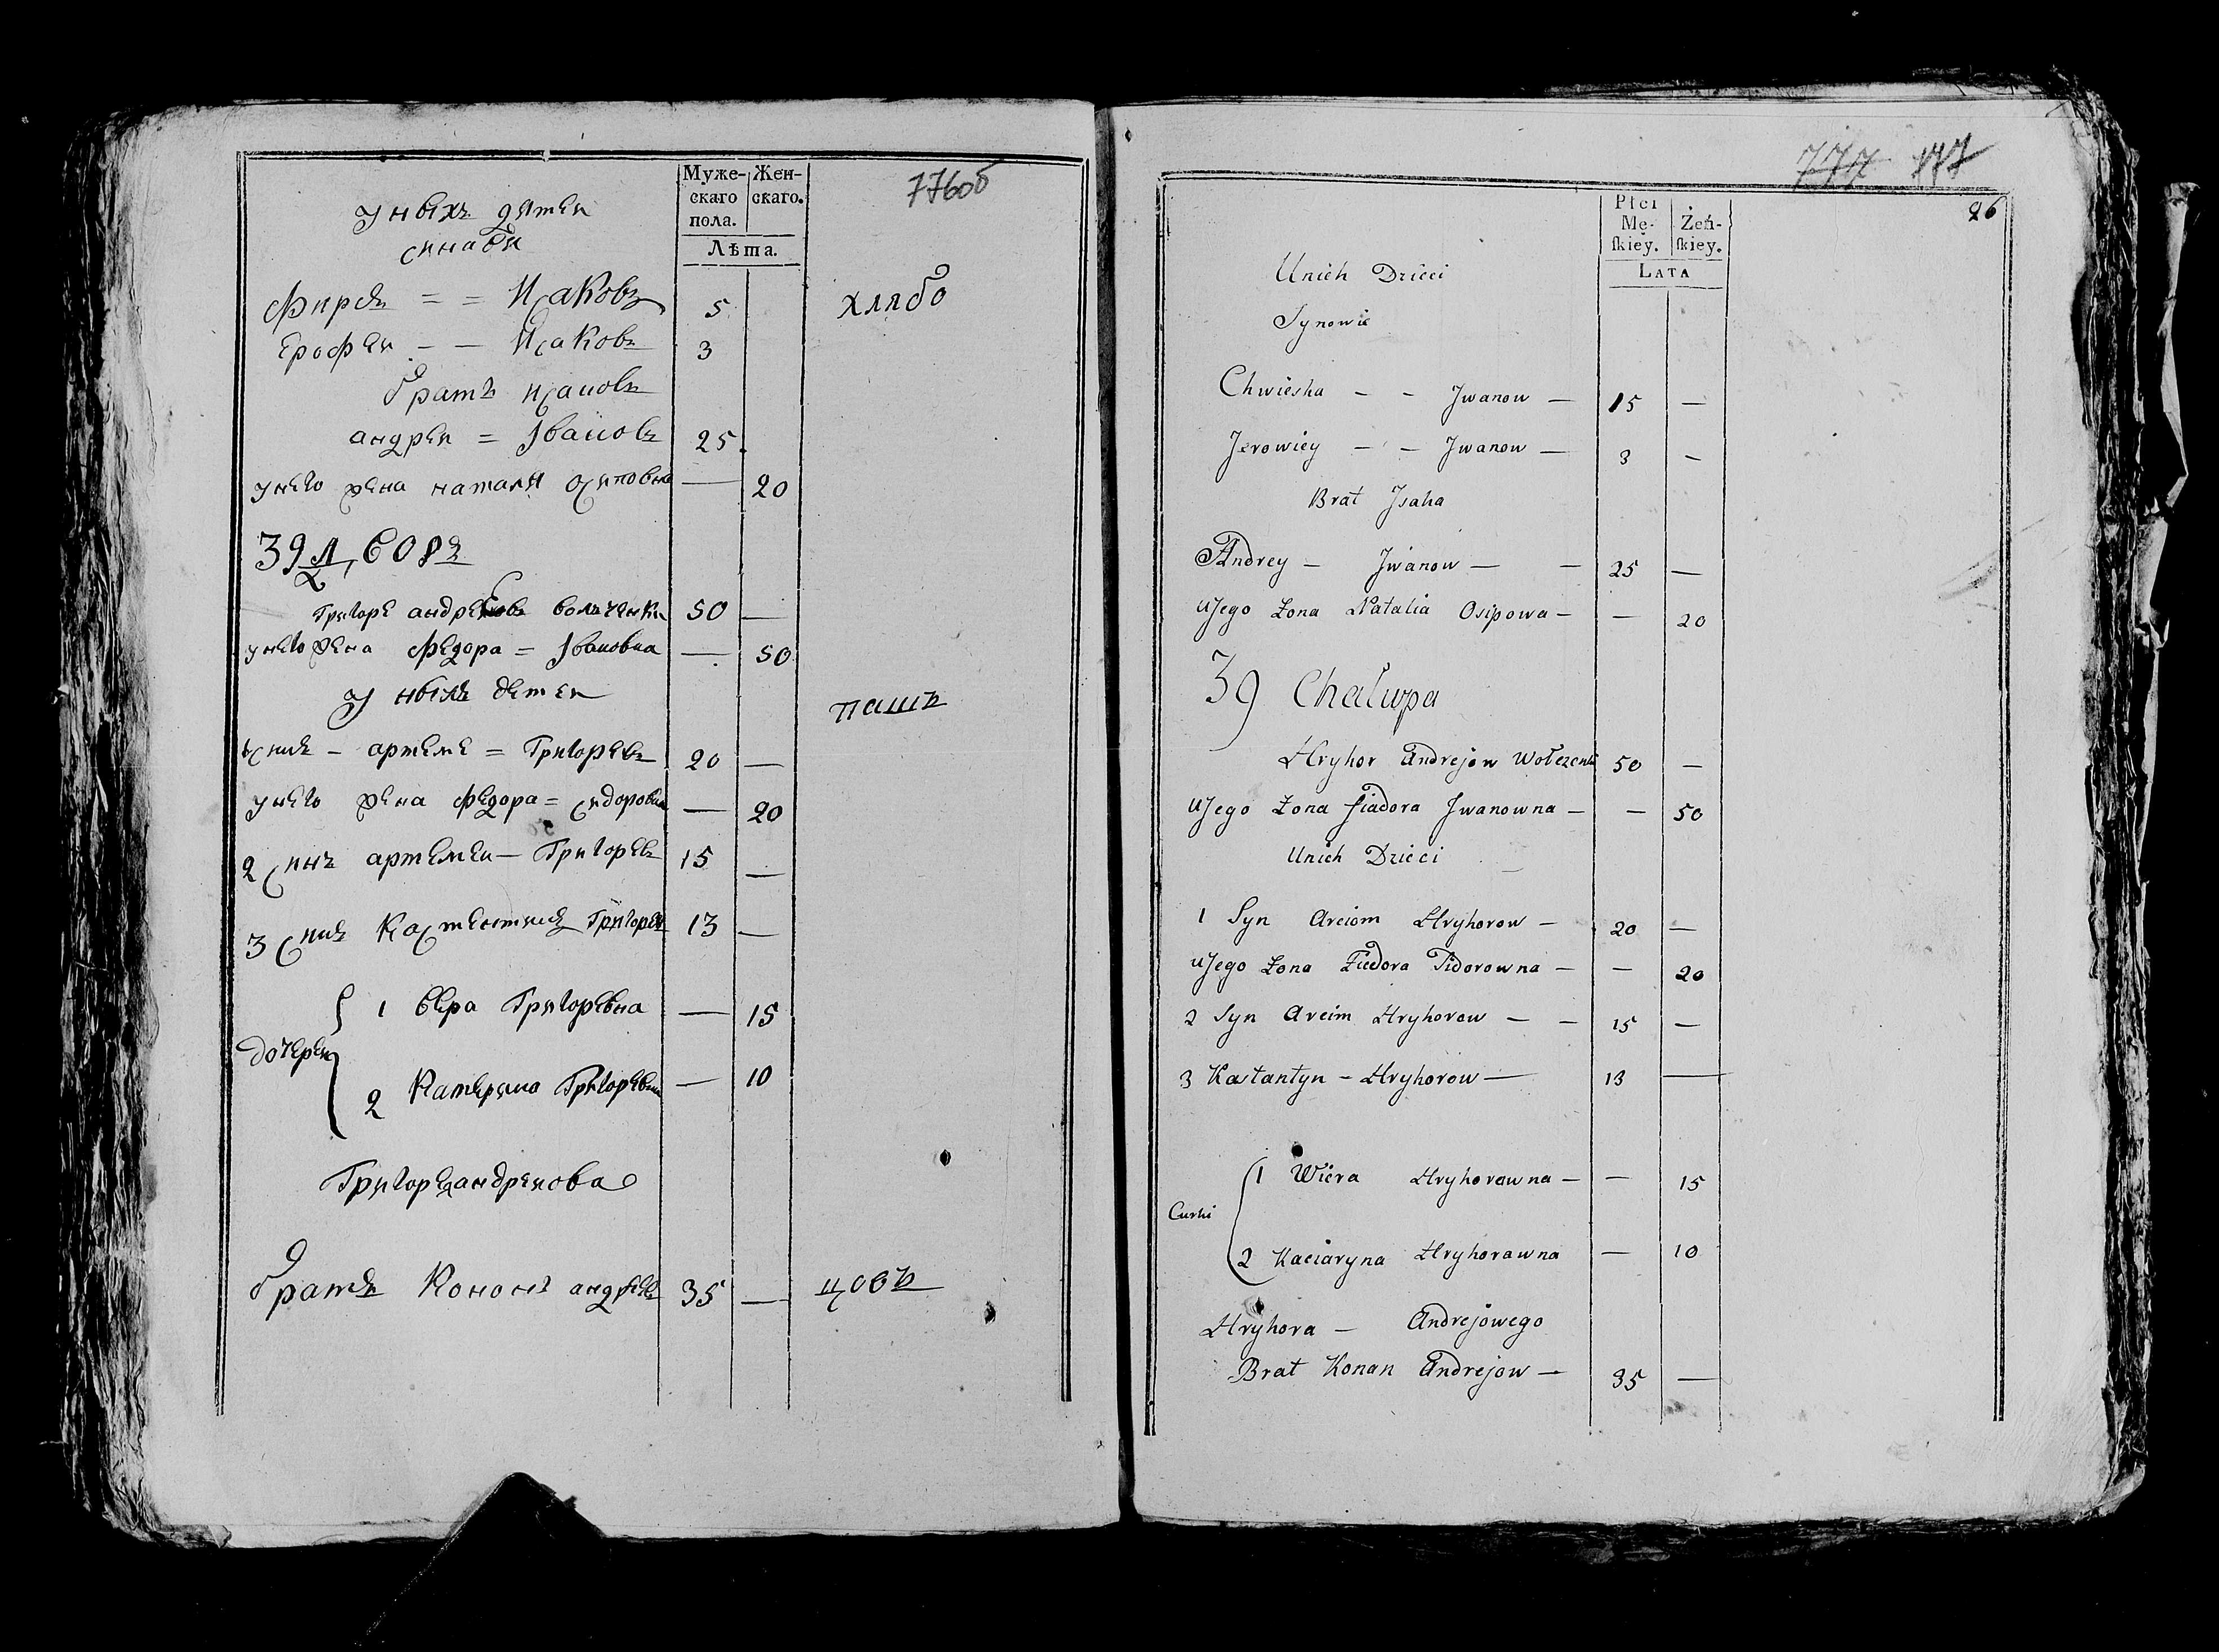 Муже-
скаго
пола.
Жен-
скаго.
Лѣта.
776об
уныхъ дѣтеи
сина
Исаковъ 5 хлябо
Ерофеи - - Исаковъ 3
братъ исаковъ
андреи = Ивановъ 25
унего жена наталя осиповна — 20
39
Григоре андреевъ 50 —
унего жена федора = Ивановна — 50
у ныхъ детеи
пашъ
артеме = Григоревъ 20 —
унего жена федора = сидоровна — 20
2 синъ артемеи — Григоревъ 15 —
3 синъ Григоревъ 13 —
дочереи
1 вера Григоревна — 15
2 Катерина Григоревна — 10
Григореандреиова
братъ Кононъ андреевъ 35 —
777 177
26
Płci
Mę-
ſkiey.
Żeń-
ſkiey.
Lata
Unich Dzieci
Synowie
Chwieska - - Jwanow — 15 —
Jerowiey - - Jwanow — 3 —
Brat Jsaka
Andrey — Jwanow — — 25 —
uJego Żona Natalia Osipowa — — 20
39 Chałupa
Hryhor Andrejow 50 —
uJego Żona Fiadora Jwanowna — — 50
Unich Dzieci
1 Syn Arciom Hryhorow — 20 —
uJego Żona Fiedora Sidorowna — — 20
2 Syn Arcim Hryhorow — — 15 —
3 Kastantyn — Hryhorow — 13 —
Curki
1 Wiera Hryhorawna — — 15
2 Kaciaryna Hryhorawna — 10
Hryhora — Andrejowego
Brat Konan Andrejow — 35 —